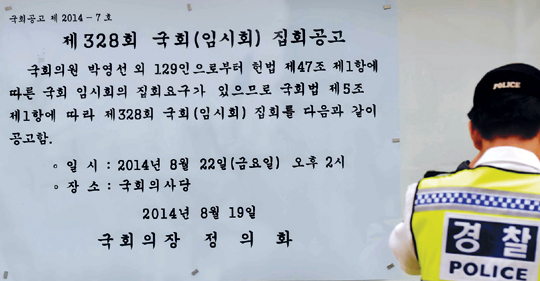 국회공고 제 2014 - 7 호
제 328회 국회(임시회) 집회공고
국회의원 박영선 외 129인으로부터 헌법 제47조 제1항에
따른 국회 임시회의 집회요구가 있으므로 국회법 제5조
제1항에 따라 제328회 국회(임시회) 집회를 다음과 같이
공고함.
◦ 일 시 : 2014년 8월 22일(금요일) 오후 2시
◦ 장 소 : 국회의사당
2014년 8월 19일
국회의장 정 의 화
POLICE
경찰
POLICE